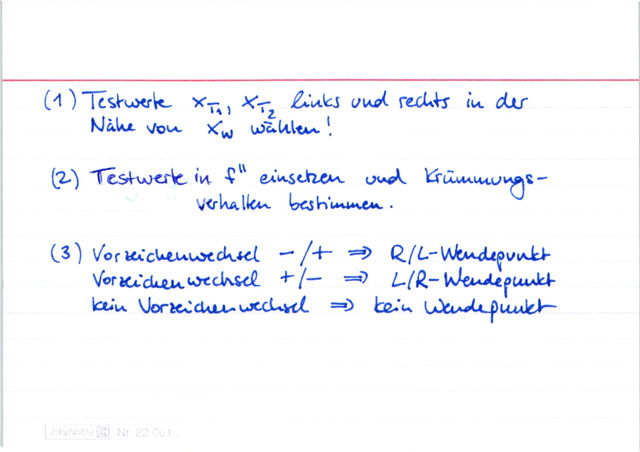 (1) Testwerte x_T1, x_T2 links und rechts in der
Nähe von x_W wählen!
(2) Testwerte in f'' einsetzen und Krümmungs-
verhalten bestimmen.
(3) Vorzeichenwechsel -/+ ⇒ R/L-Wendepunkt
Vorzeichenwechsel +/- ⇒ L/R-Wendepunkt
kein Vorzeichenwechsel ⇒ kein Wendepunkt
Nr. 22 601